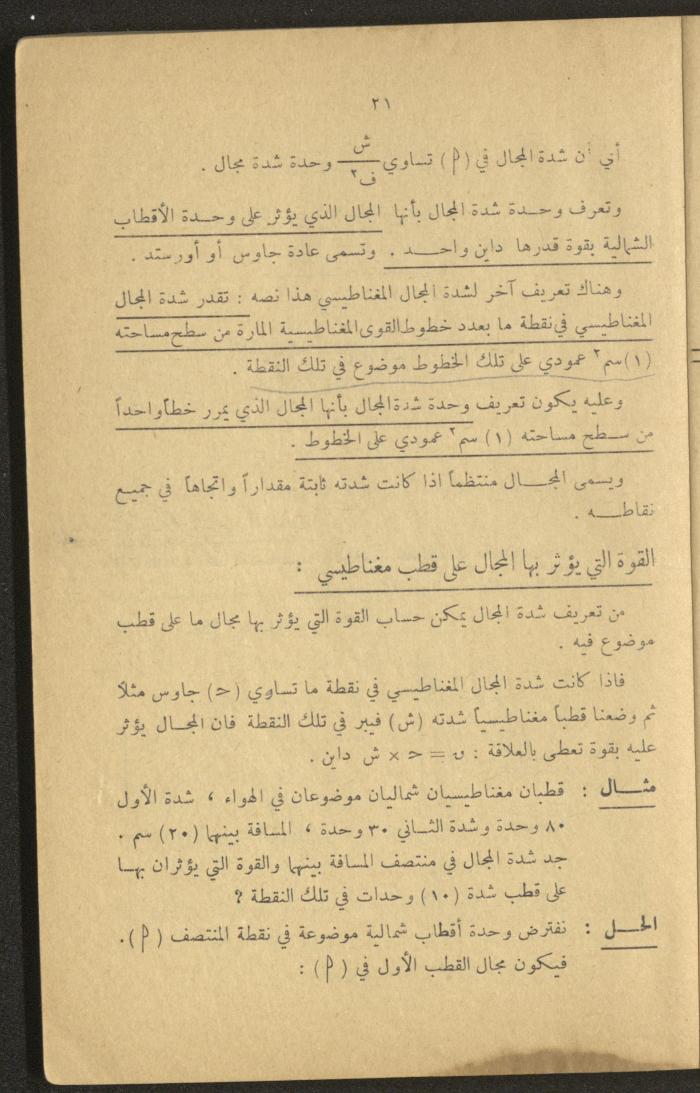 ٢١
أي أن شدة المجال في (م) تساوي ش/ف٢ وحدة شدة مجال .
وتعرف وحـدة شدة المجال بأنها المجال الذي يؤثر على وحـدة الأقطاب
الشمالية بقوة قدرها داين واحـــد . وتسمى عادة جاوس أو أورستد .
وهناك تعريف آخر لشدة المجال المغناطيسي هذا نصه : تقدر شدة المجال
المغناطيسي في نقطة ما بعدد خطوط القوى المغناطيسية المارة من سطح مساحته
(١) سم٢ عمودي على تلك الخطوط موضوع في تلك النقطة .
وعليه يكون تعريف وحدة شدة المجال بأنها المجال الذي يمرر خطاً واحداً
من سـطح مساحته (١) سم٢ عمودي على الخطوط .
ويسمى المجـــال منتظماً اذا كانت شدته ثابتة مقداراً واتجاهاً في جميع
نقاطـــه .
القوة التي يؤثر بها المجال على قطب مغناطيسي :
من تعريف شدة المجال يمكن حساب القوة التي يؤثر بها مجال ما على قطب
موضوع فيه .
فاذا كانت شدة المجال المغناطيسي في نقطة ما تساوي (ح) جاوس مثلاً
ثم وضعنا قطباً مغناطيسياً شدته (ش) فيبر في تلك النقطة فان المجـال يؤثر
عليه بقوة تعطى بالعلاقة : ق = ح × ش داين .
مثـــال : قطبان مغناطيسيان شماليان موضوعان في الهواء ، شدة الأول
٨٠ وحدة وشدة الثـاني ٣٠ وحدة ، المسافة بينهما (٢٠) سم .
جد شدة المجال في منتصف المسافة بينهما والقوة التي يؤثران بهـا
على قطب شدة (١٠) وحدات في تلك النقطة ؟
الحـــل : نفترض وحدة أقطاب شمالية موضوعة في نقطة المنتصف (م) .
فيكون مجال القطب الأول في (م) :